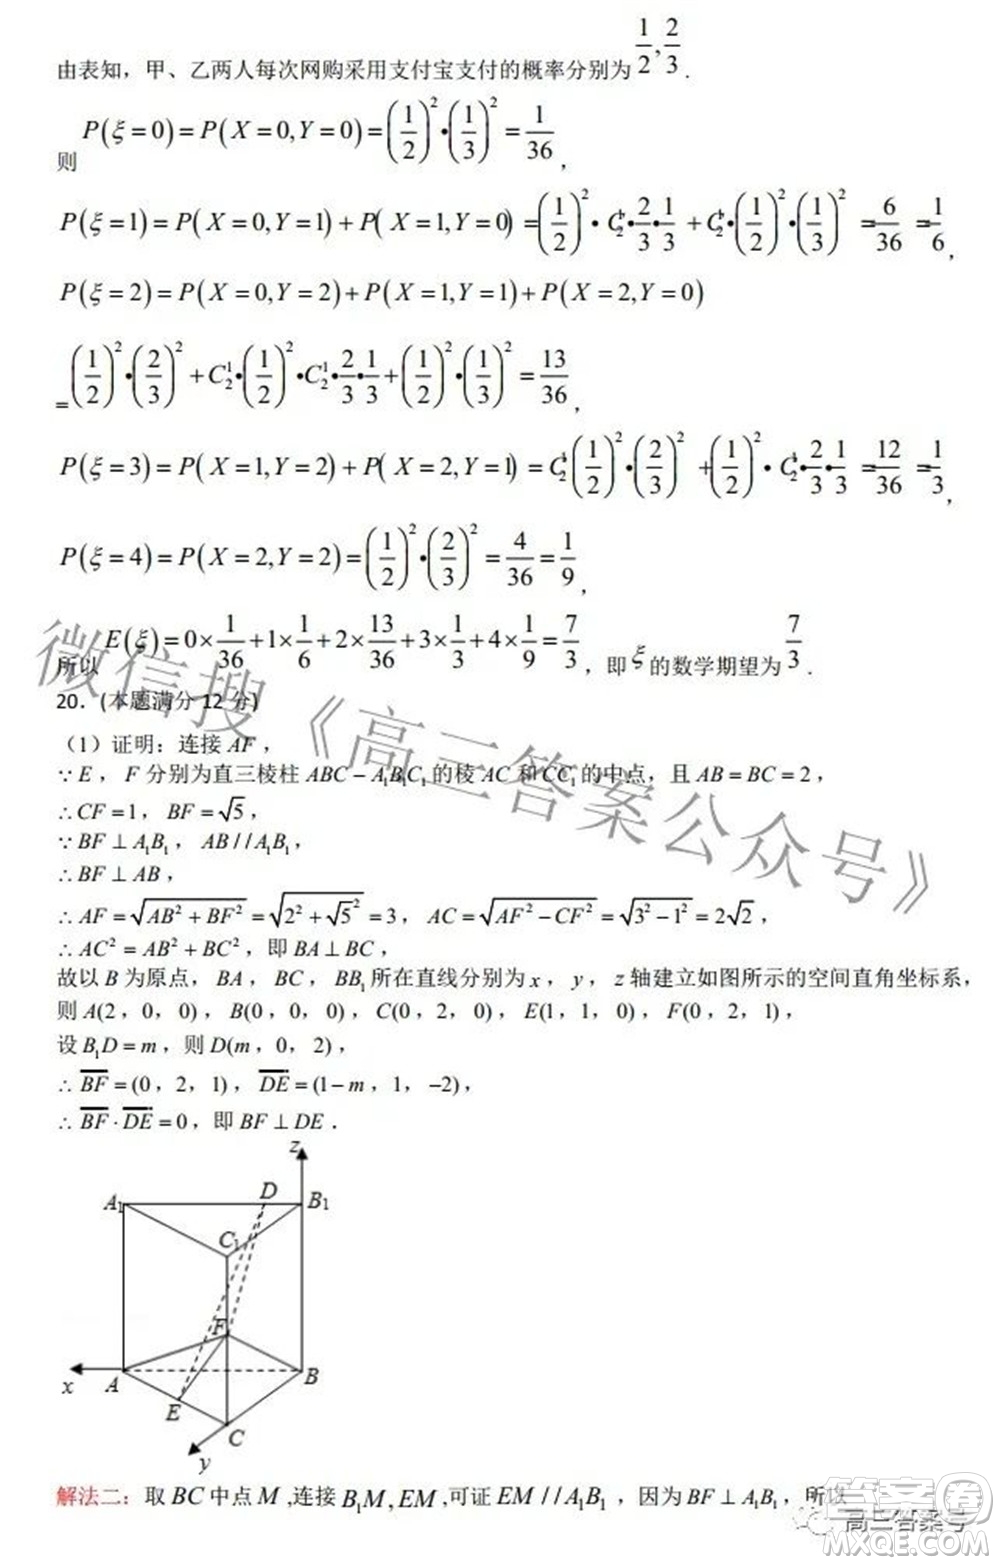 由表知，甲、乙两人每次网购采用支付宝支付的概率分别为 1/2, 2/3 .
则 P(ξ=0)=P(X=0,Y=0)=(1/2)²•(1/3)²=1/36 ，
P(ξ=1)=P(X=0,Y=1)+P(X=1,Y=0) =(1/2)²•C₂¹•2/3•1/3 +C₂¹•(1/2)²•(1/3)² =6/36 =1/6 ，
P(ξ=2)=P(X=0,Y=2)+P(X=1,Y=1)+P(X=2,Y=0)
=(1/2)²•(2/3)²+C₂¹•(1/2)²•C₂¹•2/3•1/3+(1/2)²•(1/3)²=13/36 ，
P(ξ=3)=P(X=1,Y=2)+P(X=2,Y=1) =C₂¹(1/2)²•(2/3)² +(1/2)²•C₂¹•2/3•1/3 =12/36 =1/3 ，
P(ξ=4)=P(X=2,Y=2)=(1/2)²•(2/3)²=4/36=1/9 ，
所以 E(ξ)=0×1/36+1×1/6+2×13/36+3×1/3+4×1/9=7/3 ，即 ξ 的数学期望为 7/3 .
20．(本题满分 12 分)
（1）证明：连接 AF ，
∵ E ， F 分别为直三棱柱 ABC－A₁B₁C₁ 的棱 AC 和 CC₁ 的中点，且 AB＝BC＝2 ，
∴ CF＝1 ， BF＝√5 ，
∵ BF⊥A₁B₁ ， AB//A₁B₁ ，
∴ BF⊥AB ，
∴ AF＝√(AB²+BF²)＝√(2²+√5²)＝3 ， AC＝√(AF²－CF²)＝√(3²－1²)＝2√2 ，
∴ AC²＝AB²+BC² ，即 BA⊥BC ，
故以 B 为原点， BA ， BC ， BB₁ 所在直线分别为 x ， y ， z 轴建立如图所示的空间直角坐标系，
则 A(2，0，0) ， B(0，0，0) ， C(0，2，0) ， E(1，1，0) ， F(0，2，1) ，
设 B₁D＝m ，则 D(m，0，2) ，
∴ BF＝(0，2，1) ， DE＝(1－m，1，－2) ，
∴ BF·DE＝0 ，即 BF⊥DE ．
z
A₁
D
B₁
C₁
F
x
A
B
E
C
y
解法二：取 BC 中点 M ,连接 B₁M, EM ,可证 EM//A₁B₁ ，因为 BF⊥A₁B₁ ，所以
微信搜《高三答案公众号》
高三答案号
答案圈